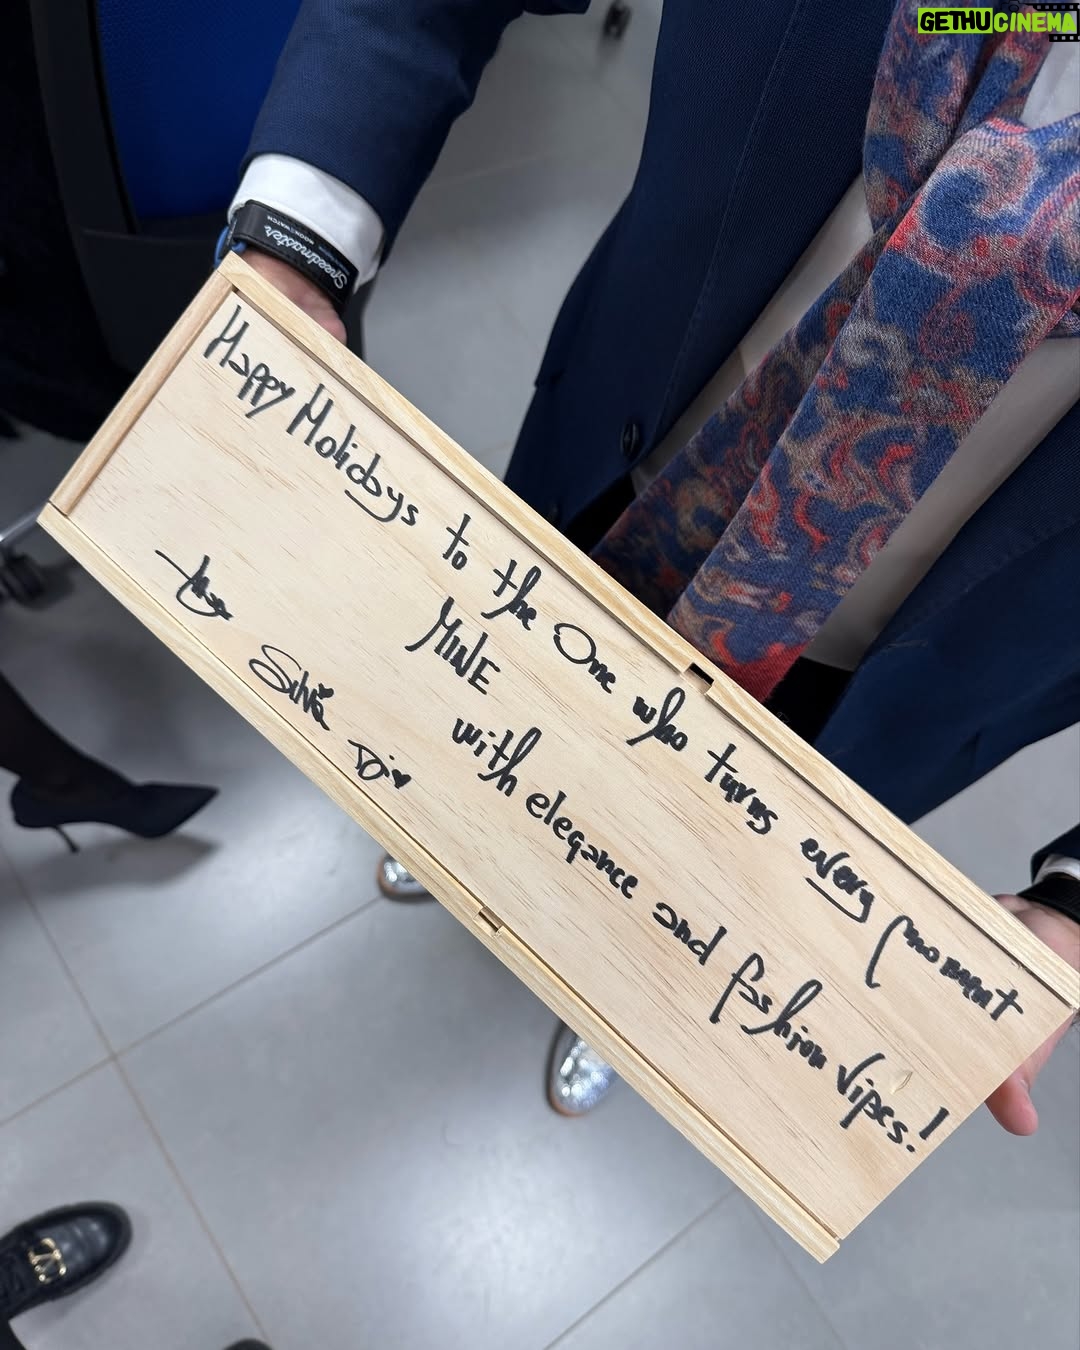 GETHUCINEMA
Speedmaster
MOONSWATCH
Happy Holidays to the One who turns every moment
MINE with elegance and fashion Vipes!
Silvia
Di